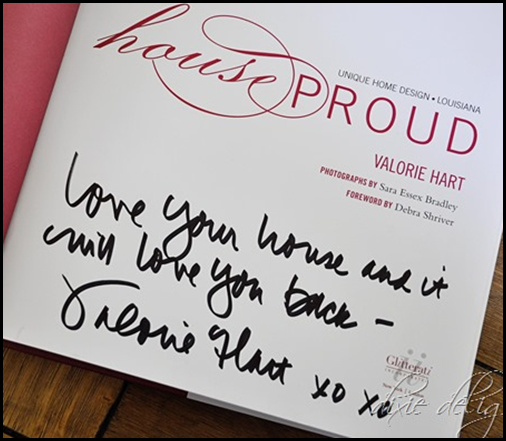 house
UNIQUE HOME DESIGN • LOUISIANA
PROUD
VALORIE HART
PHOTOGRAPHS BY Sara Essex Bradley
FOREWORD BY Debra Shriver
Love your house and it
will love you back –
Valorie Hart xo xo
Glitterati
New York
dixie delig